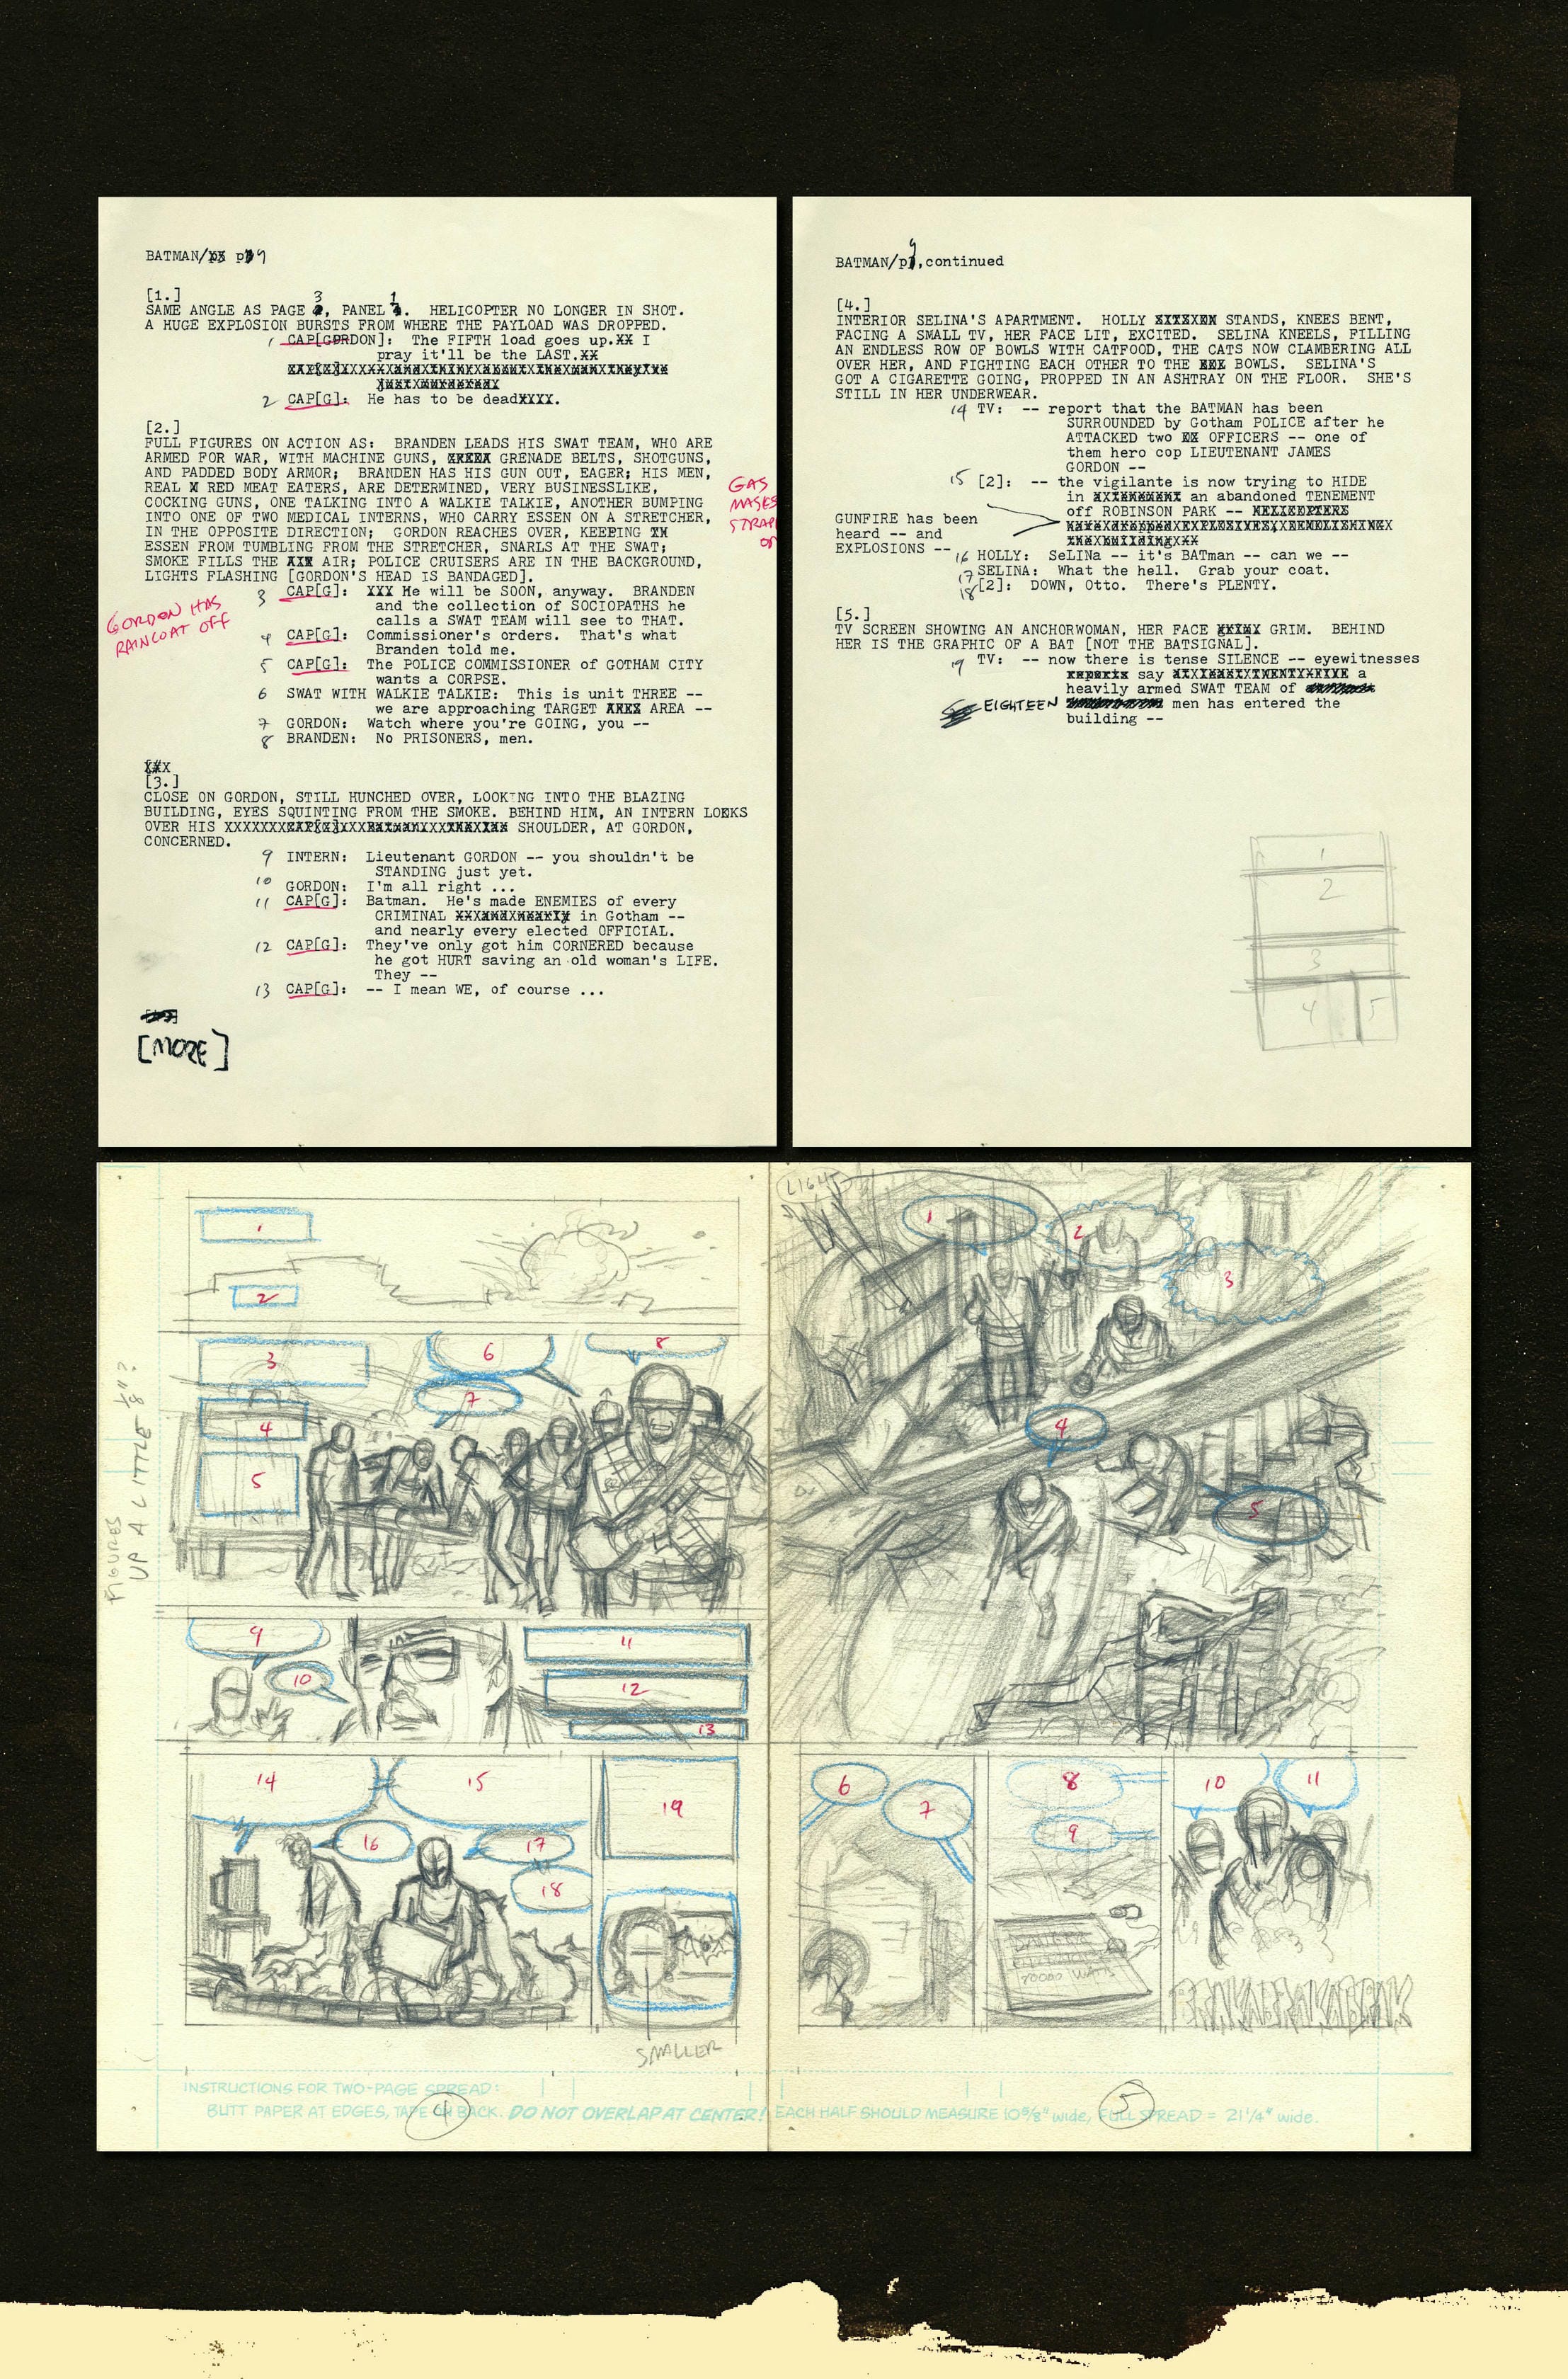 BATMAN/p3 p 9
[1.]
3 1
SAME ANGLE AS PAGE , PANEL . HELICOPTER NO LONGER IN SHOT.
A HUGE EXPLOSION BURSTS FROM WHERE THE PAYLOAD WAS DROPPED.
1 CAP[GORDON]: The FIFTH load goes up. I
pray it'll be the LAST.
2 CAP[G]: He has to be dead.
[2.]
FULL FIGURES ON ACTION AS: BRANDEN LEADS HIS SWAT TEAM, WHO ARE
ARMED FOR WAR, WITH MACHINE GUNS, GRENADE BELTS, SHOTGUNS,
AND PADDED BODY ARMOR; BRANDEN HAS HIS GUN OUT, EAGER; HIS MEN,
REAL RED MEAT EATERS, ARE DETERMINED, VERY BUSINESSLIKE,
COCKING GUNS, ONE TALKING INTO A WALKIE TALKIE, ANOTHER BUMPING
INTO ONE OF TWO MEDICAL INTERNS, WHO CARRY ESSEN ON A STRETCHER,
IN THE OPPOSITE DIRECTION; GORDON REACHES OVER, KEEPING
ESSEN FROM TUMBLING FROM THE STRETCHER, SNARLS AT THE SWAT;
SMOKE FILLS THE AIR; POLICE CRUISERS ARE IN THE BACKGROUND,
LIGHTS FLASHING [GORDON'S HEAD IS BANDAGED].
GAS
MASKS
STRAP
ON
GORDON HAS
RAINCOAT OFF
3 CAP[G]: He will be SOON, anyway. BRANDEN
and the collection of SOCIOPATHS he
calls a SWAT TEAM will see to THAT.
4 CAP[G]: Commissioner's orders. That's what
Branden told me.
5 CAP[G]: The POLICE COMMISSIONER of GOTHAM CITY
wants a CORPSE.
6 SWAT WITH WALKIE TALKIE: This is unit THREE --
we are approaching TARGET AREA --
7 GORDON: Watch where you're GOING, you --
8 BRANDEN: No PRISONERS, men.
[3.]
CLOSE ON GORDON, STILL HUNCHED OVER, LOOKING INTO THE BLAZING
BUILDING, EYES SQUINTING FROM THE SMOKE. BEHIND HIM, AN INTERN LOOKS
OVER HIS SHOULDER, AT GORDON,
CONCERNED.
9 INTERN: Lieutenant GORDON -- you shouldn't be
STANDING just yet.
10 GORDON: I'm all right ...
11 CAP[G]: Batman. He's made ENEMIES of every
CRIMINAL in Gotham --
and nearly every elected OFFICIAL.
12 CAP[G]: They've only got him CORNERED because
he got HURT saving an old woman's LIFE.
They --
13 CAP[G]: -- I mean WE, of course ...
[MORE]
9
BATMAN/p ,continued
[4.]
INTERIOR SELINA'S APARTMENT. HOLLY STANDS, KNEES BENT,
FACING A SMALL TV, HER FACE LIT, EXCITED. SELINA KNEELS, FILLING
AN ENDLESS ROW OF BOWLS WITH CATFOOD, THE CATS NOW CLAMBERING ALL
OVER HER, AND FIGHTING EACH OTHER TO THE BOWLS. SELINA'S
GOT A CIGARETTE GOING, PROPPED IN AN ASHTRAY ON THE FLOOR. SHE'S
STILL IN HER UNDERWEAR.
14 TV: -- report that the BATMAN has been
SURROUNDED by Gotham POLICE after he
ATTACKED two OFFICERS -- one of
them hero cop LIEUTENANT JAMES
GORDON --
15 [2]: -- the vigilante is now trying to HIDE
in an abandoned TENEMENT
off ROBINSON PARK --
GUNFIRE has been
heard -- and
EXPLOSIONS --
16 HOLLY: SeLINa -- it's BATman -- can we --
17 SELINA: What the hell. Grab your coat.
18 [2]: DOWN, Otto. There's PLENTY.
[5.]
TV SCREEN SHOWING AN ANCHORWOMAN, HER FACE GRIM. BEHIND
HER IS THE GRAPHIC OF A BAT [NOT THE BATSIGNAL].
19 TV: -- now there is tense SILENCE -- eyewitnesses
say a
heavily armed SWAT TEAM of
EIGHTEEN men has entered the
building --
1
2
3
4 5
1
2
3
4
5
6
7
8
FIGURES
UP A LITTLE 1/8"?
9
10
11
12
13
14
15
16
17
18
19
SMALLER
LIGHT
1
2
3
4
5
6
7
8
9
10
11
10000 WATTS
BRAKABRAKABRAK
INSTRUCTIONS FOR TWO-PAGE SPREAD:
BUTT PAPER AT EDGES, TAPE ON BACK. DO NOT OVERLAP AT CENTER! EACH HALF SHOULD MEASURE 10 5/8" wide, FULL SPREAD = 21 1/4" wide.
4
5